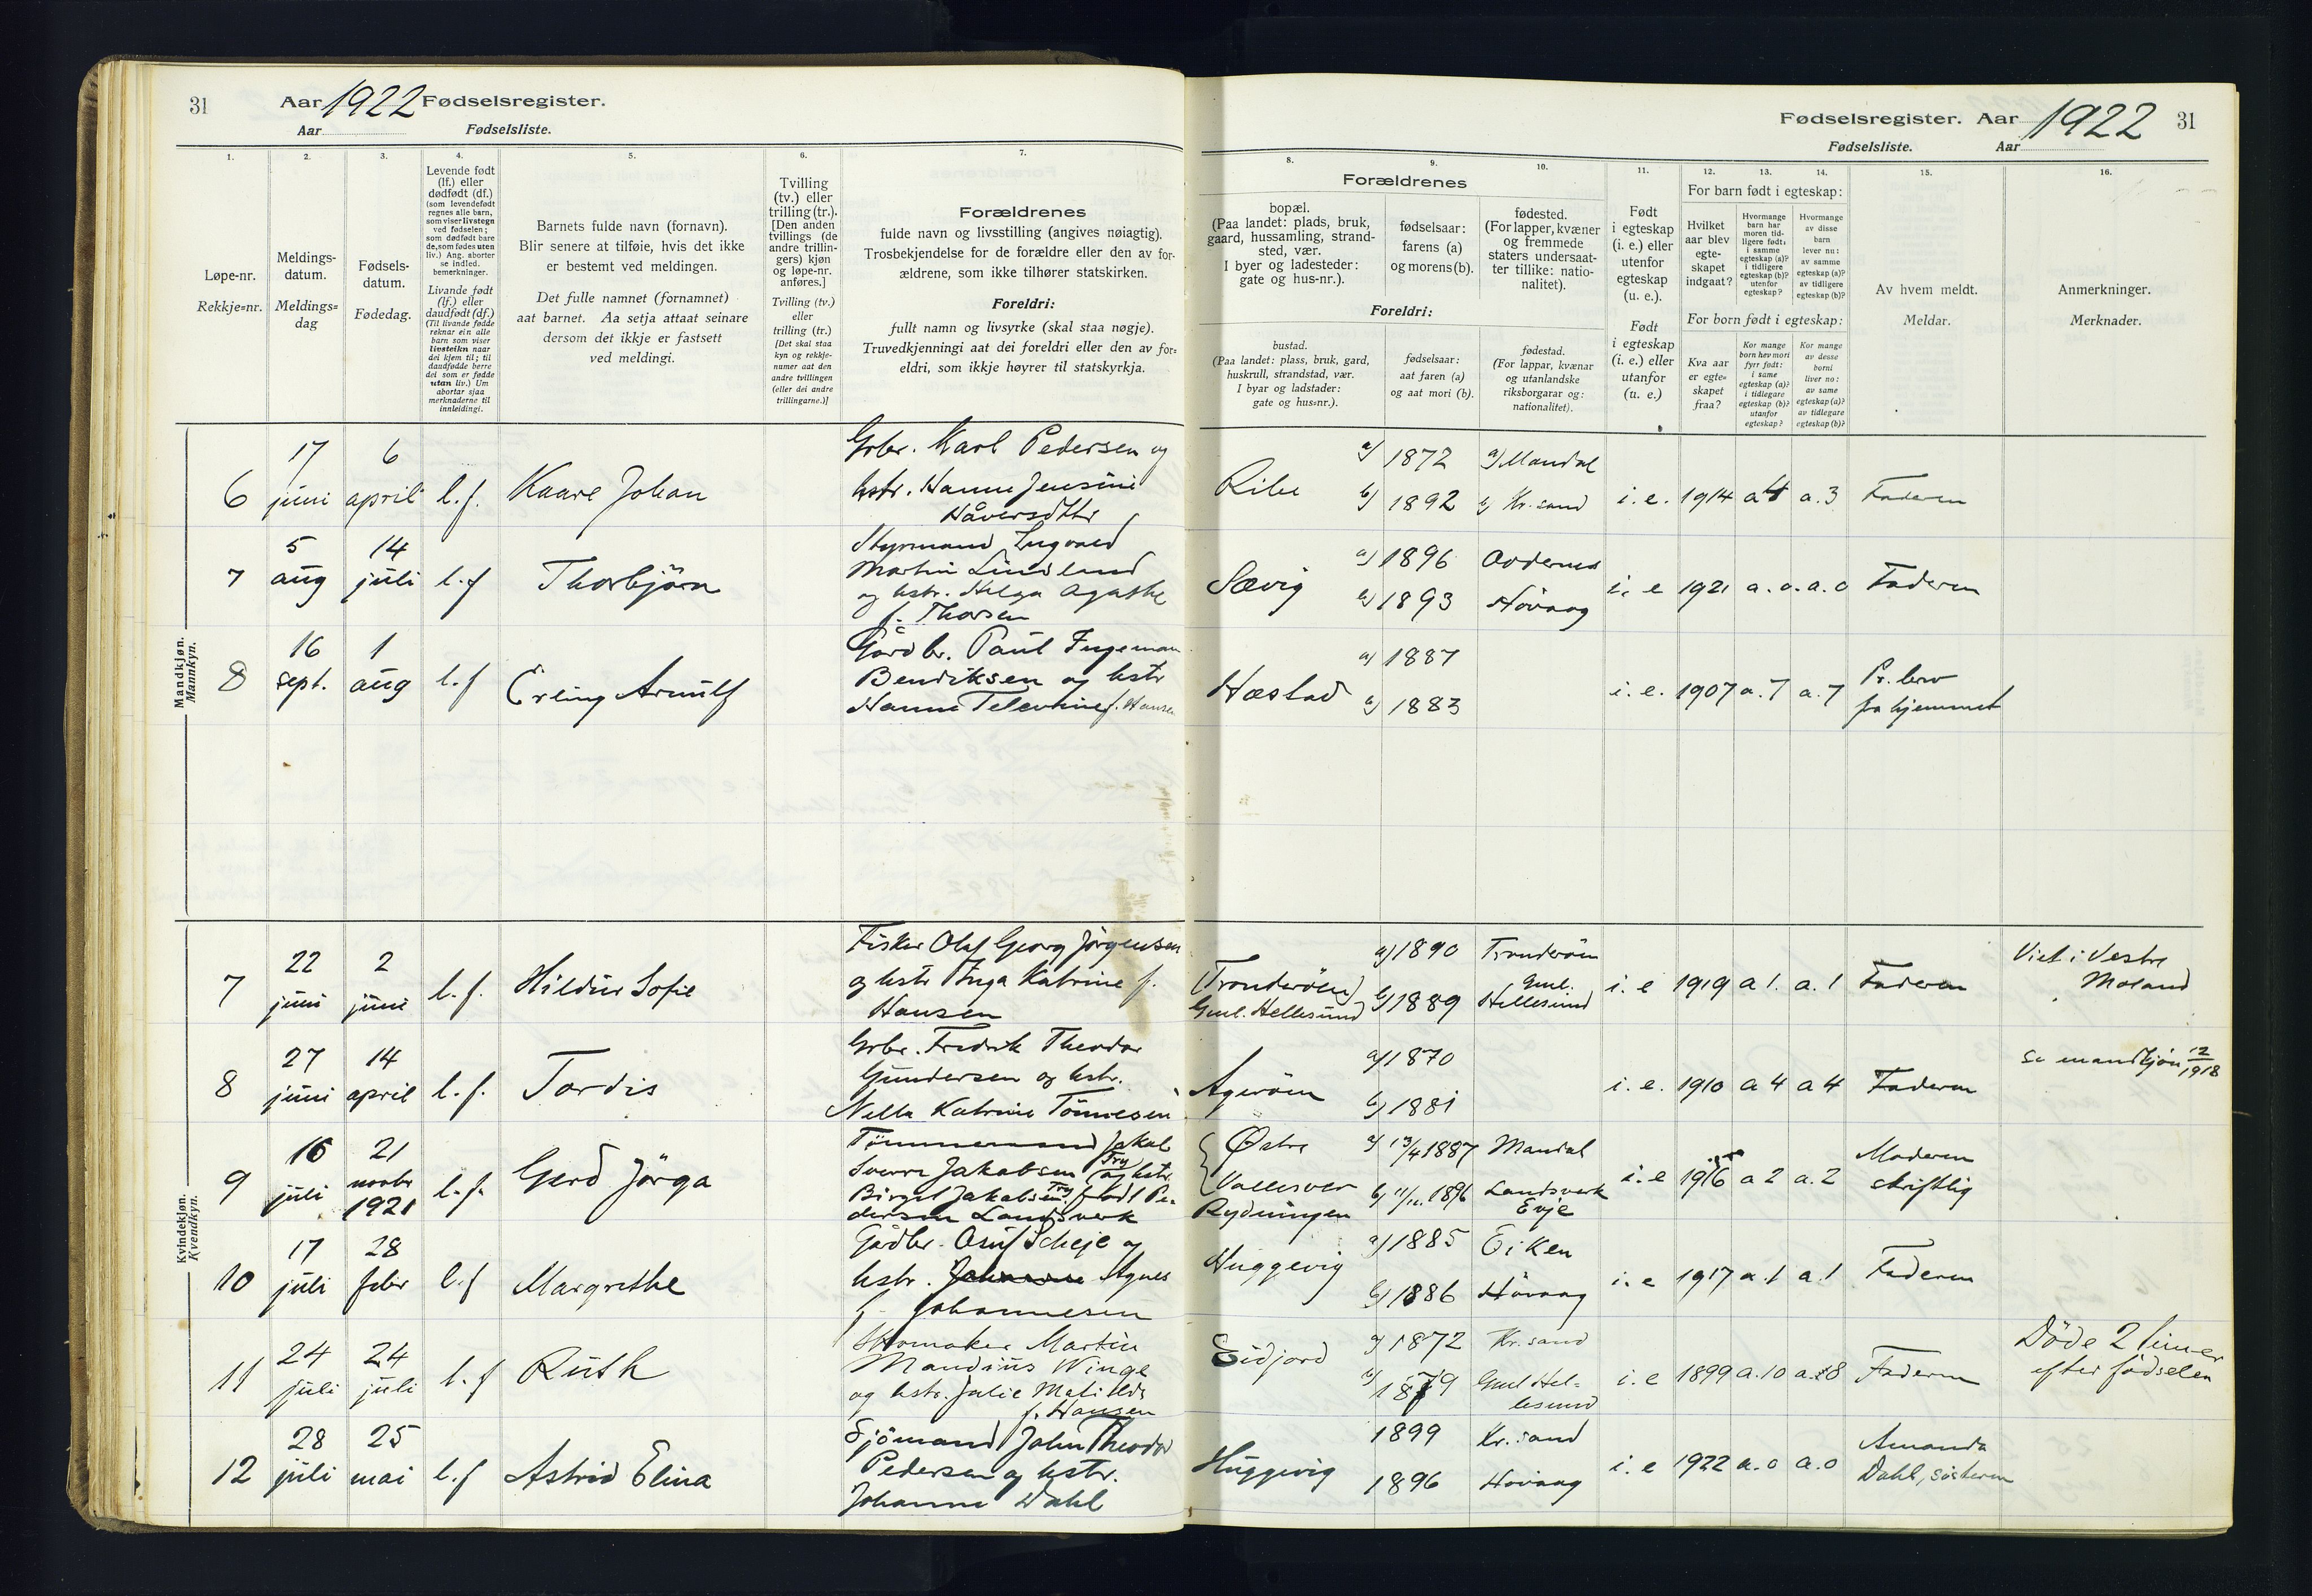 31
Aar 1922 Fødselsregister.
Aar Fødselsliste.
1.
2.
3.
4.
5.
6.
7.
Løpe-nr.
Rekkje=nr.
Meldings-
datum.
Meldings=
dag
Fødsels-
datum.
Fødedag.
Levende født
(lf.) eller
dødfødt (df.)
(som levendefødt
regnes alle barn,
som viser livstegn
ved fødselen;
som dødfødt bare
de, som fødes uten
liv.) Ang. aborter
se indled.
bemerkninger.
Livande født
(lf.) eller
daudfødt (df.)
(Til livande fødde
reknar ein alle
barn som viser
livsteikn naar
dei kjem til; til
daudfødde berre
dei som er fødde
utan liv.) Um
abortar sjaa
merknaderne til
innleidingi.
Barnets fulde navn (fornavn).
Blir senere at tilføie, hvis det ikke
er bestemt ved meldingen.
Det fulle namnet (fornamnet)
aat barnet. Aa setja attaat seinare
dersom det ikkje er fastsett
ved meldingi.
Tvilling
(tv.) eller
trilling (tr.).
[Den anden
tvillings (de
andre trillin-
gers) kjøn
og løpe-nr.
anføres.]
Tvilling (tv.)
eller
trilling (tr.)
[Det skal staa
kyn og rekkje-
numer aat den
andre tvillingen
(eller dei andre
trillingarne.)]
Forældrenes
fulde navn og livsstilling (angives nøiagtig).
Trosbekjendelse for de forældre eller den av for-
ældrene, som ikke tilhører statskirken.
Foreldri:
fullt namn og livsyrke (skal staa nøgje).
Truvedkjenningi aat dei foreldri eller den av for=
eldri, som ikkje høyrer til statskyrkja.
Fødselsregister. Aar 1922 31
Fødselsliste. Aar
8.
9.
10.
11.
12.
13.
14.
15.
16.
Forældrenes
bopæl.
(Paa landet: plads, bruk,
gaard, hussamling, strand-
sted, vær.
I byer og ladesteder:
gate og hus-nr.).
fødselsaar:
farens (a)
og morens (b).
fødested.
(For lapper, kvæner
og fremmede
staters undersaat-
ter tillike: natio-
nalitet).
Foreldri:
bustad.
(Paa landet: plass, bruk, gard,
huskrull, strandstad, vær.
I byar og ladstader:
gate og hus=nr.).
fødselsaar:
aat faren (a)
og aat mori (b).
fødestad.
(For lappar, kvænar
og utanlandske
riksborgarar og:
nationalitet).
Født
i egteskap
(i. e.) eller
utenfor
egteskap
(u. e.).
Født
i egteskap
(i. e.) eller
utanfor
(u. e.)
For barn født i egteskap:
Hvilket
aar blev
egte-
skapet
indgaat?
Hvormange
barn har
moren tid-
ligere født:
i samme
egteskap (a)?
i tidligere
egteskap (b)?
utenfor
egteskap?
Hvormange
av disse
barn
lever nu:
av samme
egteskap (a)?
av tidligere
egteskap (b)?
For born født i egteskap:
Kva aar
er egte=
skapet
fraa?
Kor mange
born hev mori
fyrr født:
i same
egteskap (a)?
i tidlegare
egteskap (b)?
utanfor
egteskap?
Kor mange
av desse
borni
liver no:
av same
egteskap (a)?
av tidlegare
egteskap (b)?
Av hvem meldt.
Meldar.
Anmerkninger.
Merknader.
Mandkjøn.
Mannkyn.
6 17 juni 6 april l.f. Kaare Johan
Grbr. Karl Pedersen og
hstr. Hanne Jensine
Håversdttr
Ribe a) 1872 a) Mandal
b) 1892 b) Kr.sand
i. e. 1914 a 4 a. 3 Faderen
7 5 aug 14 juli l.f Thorbjörn
Styrmand Ingvald
Martin Lindland
og hstr. Helga Agathe
f. Thorsen
Sævig a) 1896
b) 1893 Hövaag
i. e 1921 a. o. a. o Faderen
8 16 sept. 1 aug l.f Erling Arnulf
Gårdbr. Paul Ingeman
Bendiksen og hstr
Hanne f. Hansen
Hæstad a) 1887
b) 1883
i. e. 1907 a. 7 a. 7
fra hjemmet
Kvindekjøn.
Kvendkyn.
7 22 juni 2 juni l.f. Hildur Sofie
Fisker Olaf Georg Jörgensen
og hstr Inga Katrine f.
Hansen
(Tronderöen)
Gml. Hellesund
a) 1890 Tronderöen
b) 1889 Gml. Hellesund
i. e 1919 a 1. a. 1 Faderen
Viet i Vestre
Moland
8 27 juni 14 april l.f. Tordis
Grbr. Fredrik Theodor
Gundersen og hstr.
Nella Katrine Tönnesen
Ageröen a) 1870
b) 1881
i. e. 1910 a 4 a 4 Faderen
se mandkjøn 12/1918
9 16 juli 21 novbr 1921 l.f. Gerd Jörga
Tömmermand Jakob
Sverre Jakobsen Try og hstr.
Birgit Jakobsen Try född Pe-
dersen Landsverk
Østre
Vallesver
Rydningen
a) 13/4 1887 Mandal
b) 11/11. 1896 Landsverk
Evje
i. e 1916 a 2 a. 2 Moderen
skriftlig
10 17 juli 28 febr l.f Margrethe
Gårdbr. Osuf Scheje og
hstr. Johanne Agnes
f. Johannesen
Huggevig a) 1885 Eiken
b) 1886 Hövaag
i. e 1917 a. 1 a. 1 Faderen
11 24 juli 24 juli l.f Ruth
Skomaker Martin
Mandius Winge
og hstr. Julie Matilde
f. Hansen
Eidjord a) 1872 Kr.sand
b) 1879 Gml Hel-
lesund
i. e 1899 a. 10 a. 8 Faderen
Döde 2 timer
efter födselen
12 28 juli 25 mai l.f Astrid Elina
Sjömand John Theodor
Pedersen og hstr.
Johanne Dahl
Huggevig 1899 Kr.sand
1896 Hövaag
i. e 1922 a. o a. o Amanda
Dahl, søsteren